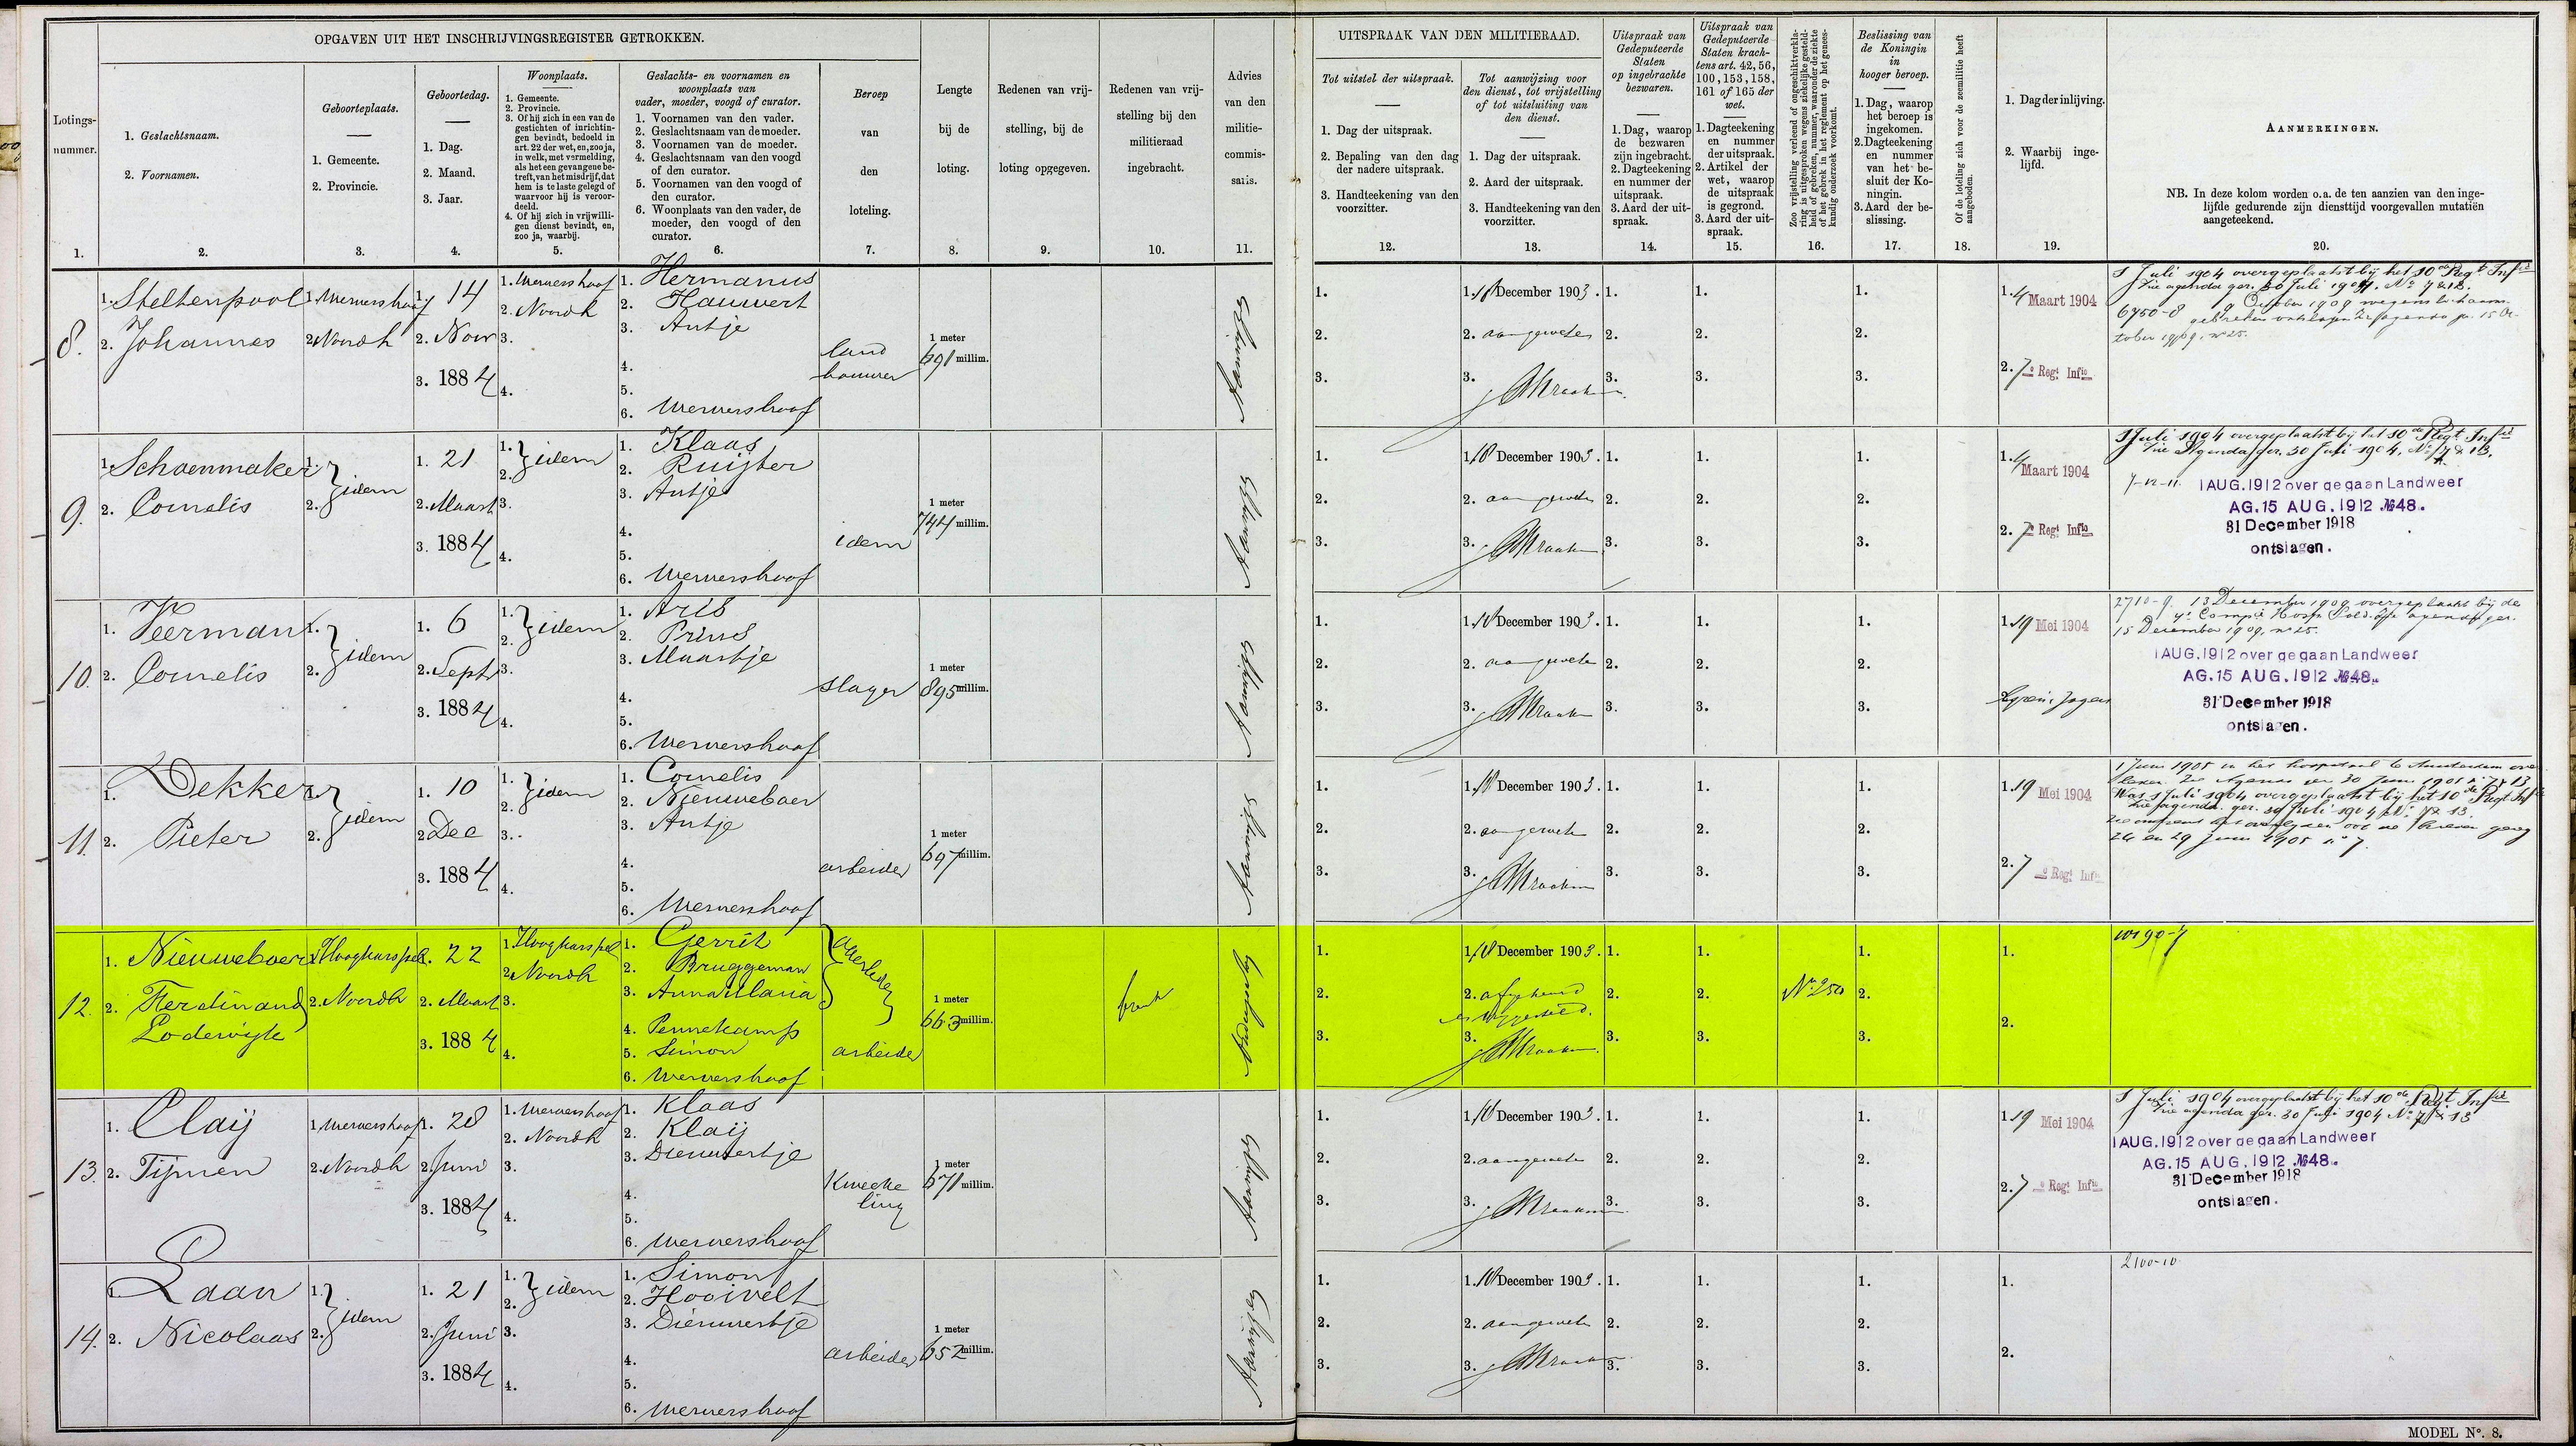 OPGAVEN UIT HET INSCHRIJVINGSREGISTER GETROKKEN.
Lotings-
nummer.
1.
1. Geslachtsnaam.
2. Voornamen.
2.
Geboorteplaats.
1. Gemeente.
2. Provincie.
3.
Geboortedag.
1. Dag.
2. Maand.
3. Jaar.
4.
Woonplaats.
1. Gemeente.
2. Provincie.
3. Of hij zich in een van de
gestichten of inrichtin-
gen bevindt, bedoeld in
art. 22 der wet, en, zoo ja,
in welk, met vermelding,
als het een gevangene be-
treft, van het misdrijf, dat
hem is te laste gelegd of
waarvoor hij is veroor-
deeld.
4. Of hij zich in vrijwilli-
gen dienst bevindt, en,
zoo ja, waarbij.
5.
Geslachts- en voornamen en
woonplaats van
vader, moeder, voogd of curator.
1. Voornamen van den vader.
2. Geslachtsnaam van de moeder.
3. Voornamen van de moeder.
4. Geslachtsnaam van den voogd
of den curator.
5. Voornamen van den voogd of
den curator.
6. Woonplaats van den vader, de
moeder, den voogd of den
curator.
6.
Beroep
van
den
loteling.
7.
Lengte
bij de
loting.
8.
Redenen van vrij-
stelling, bij de
loting opgegeven.
9.
Redenen van vrij-
stelling bij den
militieraad
ingebracht.
10.
Advies
van den
militie-
commis-
saris.
11.
UITSPRAAK VAN DEN MILITIERAAD.
Tot uitstel der uitspraak.
1. Dag der uitspraak.
2. Bepaling van den dag
der nadere uitspraak.
3. Handteekening van den
voorzitter.
12.
Tot aanwijzing voor
den dienst, tot vrijstelling
of tot uitsluiting van
den dienst.
1. Dag der uitspraak.
2. Aard der uitspraak.
3. Handteekening van den
voorzitter.
13.
Uitspraak van
Gedeputeerde
Staten
op ingebrachte
bezwaren.
1. Dag, waarop
de bezwaren
zijn ingebracht.
2. Dagteekening
en nummer der
uitspraak.
3. Aard der uit-
spraak.
14.
Uitspraak van
Gedeputeerde
Staten krach-
tens art. 42, 56,
100, 153, 158,
161 of 165 der
wet.
1. Dagteekening
en nummer
der uitspraak.
2. Artikel der
wet, waarop
de uitspraak
is gegrond.
3. Aard der uit-
spraak.
15.
Zoo vrijstelling verleend of ongeschiktverkla-
ring is uitgesproken wegens ziekelijke gesteld-
heid of gebreken, nummer, waaronder de ziekte
of het gebrek in het reglement op het genees-
kundig onderzoek voorkomt.
16.
Beslissing van
de Koningin
in
hooger beroep.
1. Dag, waarop
het beroep is
ingekomen.
2. Dagteekening
en nummer
van het be-
sluit der Ko-
ningin.
3. Aard der be-
slissing.
17.
Of de loteling zich voor de zeemilitie heeft
aangeboden.
18.
1. Dag der inlijving.
2. Waarbij inge-
lijfd.
19.
AANMERKINGEN.
NB. In deze kolom worden o.a. de ten aanzien van den inge-
lijfde gedurende zijn diensttijd voorgevallen mutatiën
aangeteekend.
20.
8.
1. Steltenpool
2. Johannes
1. Wervershoof
2. Noordh
1. 14
2. Novr
3. 1884
1. Wervershoof
2. Noordh
3.
4.
1. Hermanus
2. Hauwert
3. Antje
4.
5.
6. Wervershoof
land
bouwer
1 meter
691 millim.
Aanwijzen
1.
2.
3.
1. 10 December 1903.
2. aangewezen
3.
1. 4 Maart 1904
2. 7e Regt Infie
1 Juli 1904 overgeplaatst bij het 10de Regt Infie
Zie agenda ger. 30 Juli 1904. No 7 & 13.
9.
1. Schoenmaker
2. Cornelis
1. 2. idem
1. 21
2. Maart
3. 1884
1. 2. idem
3.
4.
1. Klaas
2. Ruijter
3. Antje
4.
5.
6. Wervershoof
idem
1 meter
744 millim.
Aanwijzen
1. 10 December 1903.
2. aangewezen
3.
1. 4 Maart 1904
2. 7e Regt Infie
1 Juli 1904 overgeplaatst bij het 10de Regt Infie
Zie Agenda ger. 30 Juli 1904. No 7 & 13.
7-12-11.
1 AUG. 1912 overgegaan Landweer
AG. 15 AUG. 1912 №48.
31 December 1918
ontslagen.
10.
1. Veerman
2. Cornelis
1. 2. idem
1. 6
2. Septr
3. 1884
1. 2. idem
3.
4.
1. Aris
2. Prins
3. Maartje
4.
5.
6. Wervershoof
slager
1 meter
895 millim.
Aanwijzen
1. 10 December 1903.
2. aangewezen
3.
1. 19 Mei 1904
2710-9. 13 December 1909 overgeplaatst bij de
15 December 1909, no 25.
1 AUG. 1912 overgegaan Landweer
AG. 15 AUG. 1912 №48.
31 December 1918
ontslagen.
11.
1. Dekker
2. Pieter
1. 2. idem
1. 10
2. Dec
3. 1884
1. 2. idem
3.
4.
1. Cornelis
2. Nieuweboer
3. Antje
4.
5.
6. Wervershoof
arbeider
1 meter
697 millim.
Aanwijzen
1. 10 December 1903.
2. aangewezen
3.
1. 19 Mei 1904
2. 7e Regt Infie
1 Juni 1905 in het hospitaal te Amsterdam over
leden. Zie Agenda der 30 Juni 1905 no 7 & 13
Was 1 Juli 1904 overgeplaatst bij het 10de Regt Infie
Zie agenda ger. 30 Juli 1904 No 7 & 13.
12.
1. Nieuweboer
2. Ferdinand
Lodewijk
1. Hoogkarspel
2. Noordh
1. 22
2. Maart
3. 1884
1. Hoogkarspel
2. Noordh
3.
4.
1. Gerrit
2. Bruggeman
3. Anna Maria
overleden
4. Pennekamp
5. Simon
6. Wervershoof
arbeider
1 meter
663 millim.
1. 10 December 1903.
2. afgekeurd
3.
No 250
13.
1. Claij
2. Tijmen
1. Wervershoof
2. Noordh
1. 28
2. Juni
3. 1884
1. Wervershoof
2. Noordh
3.
4.
1. Klaas
2. Klaij
3. Dieuwertje
4.
5.
6. Wervershoof
Kweeke
ling
1 meter
671 millim.
Aanwijzen
1. 10 December 1903.
2. aangewezen
3.
1. 19 Mei 1904
2. 7e Regt Infie
1 Juli 1904 overgeplaatst bij het 10de Regt Infie
Zie agenda ger. 30 Juli 1904 No 7 & 13
1 AUG. 1912 overgegaan Landweer
AG. 15 AUG. 1912 №48.
31 December 1918
ontslagen.
14.
1. Laan
2. Nicolaas
1. 2. idem
1. 21
2. Juni
3. 1884
1. 2. idem
3.
4.
1. Simon
2. Hooivelt
3. Dieuwertje
4.
5.
6. Wervershoof
arbeider
1 meter
652 millim.
Aanwijzen
1. 10 December 1903.
2. aangewezen
3.
1.
2.
2100-10.
MODEL No. 8.